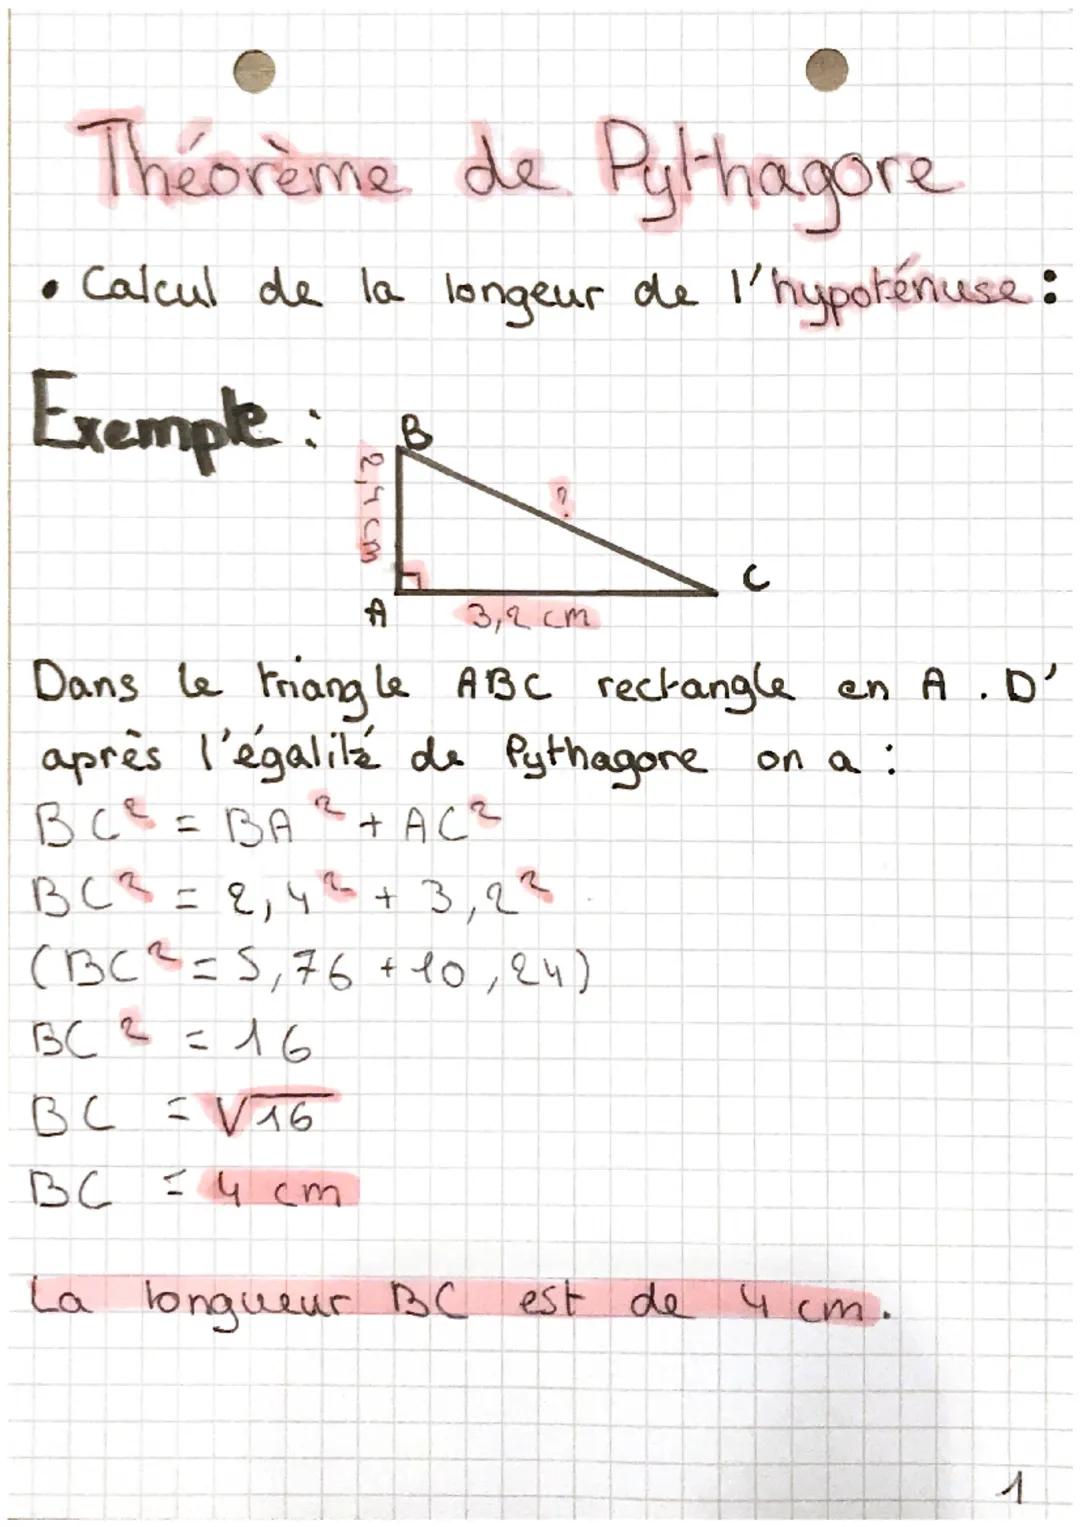 Théorème de Pythagore
• Calcul de la longeur de l'hypoténuse :
Exemple :
B
2,4 cm
?
C
A
3,2 cm
Dans le triangle ABC rectangle en A. D'
après l'égalité de Pythagore on a :
BC² = BA² + AC²
BC² = 2,4² + 3,2²
(BC² = 5,76 + 10,24)
BC² = 16
BC = √16
BC = 4 cm
La longueur BC est de 4 cm.
1